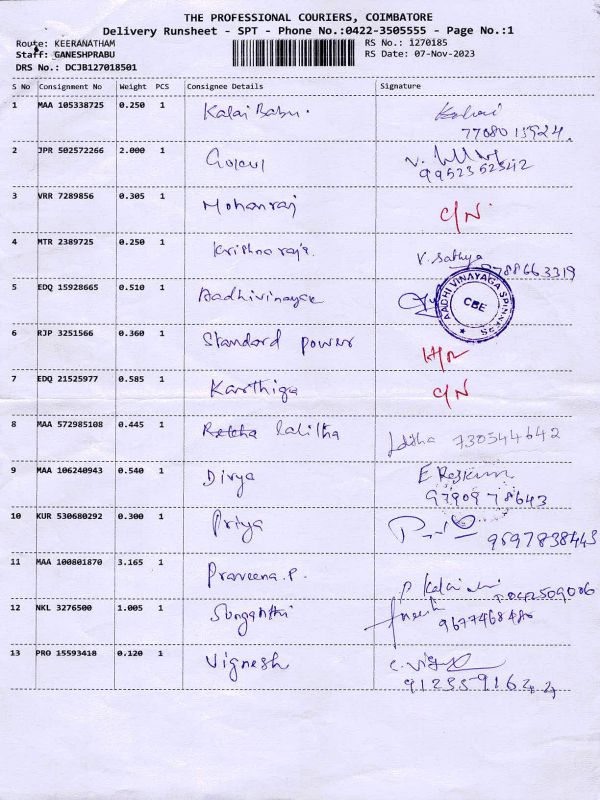 THE PROFESSIONAL COURIERS, COIMBATORE
Delivery Runsheet - SPT - Phone No.:0422-3505555 - Page No.:1
Route: KEERANATHAM RS No.: 1270185
Staff: GANESHPRABU RS Date: 07-Nov-2023
DRS No.: DCJB127018501
S No Consignment No Weight PCS Consignee Details Signature
1 MAA 105338725 0.250 1 Kalai Babu. Kalai
77080 15924.
2 JPR 502572266 2.000 1 Gokul
9952352542
3 VRR 7289856 0.305 1 Mohanraj C/N
4 MTR 2389725 0.250 1 Krishnaraja V. Sathya
8788663319
5 EDQ 15928665 0.510 1 Aadhivinayak
AADHI VINAYAGA SPINNERS
CBE
6 RJP 3251566 0.360 1 Standard power
7 EDQ 21525977 0.585 1 Karthiga C/N
8 MAA 572985108 0.445 1 Lalitha 730544642
9 MAA 106240943 0.540 1 Divya
9790978643
10 KUR 530680292 0.300 1 Priya
9597838443
11 MAA 100801870 3.165 1 Praveena.P.
12 NKL 3276500 1.005 1
13 PRO 15593418 0.120 1 Vignesh